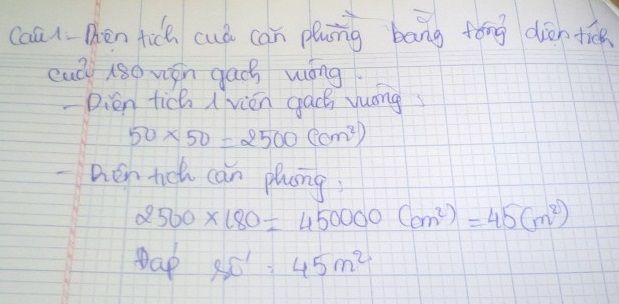 Câu 1 - Diện tích của căn phòng bằng tổng diện tích
của 180 viên gạch vuông.
- Diện tích 1 viên gạch vuông:
50 x 50 = 2500 (cm²)
- Diện tích căn phòng:
2500 x 180 = 450000 (cm²) = 45 (m²)
Đáp số: 45 m²